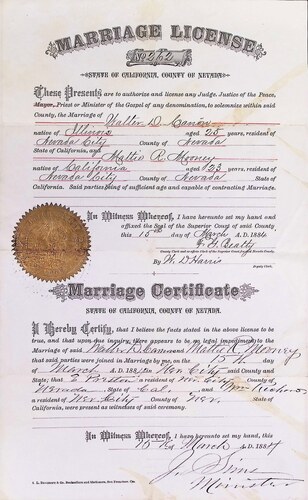 MARRIAGE LICENSE
STATE OF CALIFORNIA, COUNTY OF NEVADA.
These Presents are to authorize and license any Judge, Justice of the Peace,
Mayor, Priest or Minister of the Gospel of any denomination, to solemnize within said
County, the Marriage of Walter D.
native of Illinois aged 25 years, resident of
Nevada City County of Nevada
State of California, and Mattie R. Mooney
native of California aged 23 years, resident of
Nevada City County of Nevada State of
California. Said parties being of sufficient age and capable of contracting Marriage.
In Witness Whereof, I have hereunto set my hand and
affixed the Seal of the Superior Court of said County
this 15th day of March A.D. 188
Beatty
By W D Harris
Deputy Clerk.
Marriage Certificate
STATE OF CALIFORNIA, COUNTY OF NEVADA.
I Hereby Certify, that I believe the facts stated in the above license to be
true, and that upon due inquiry, there appears to be no legal impediment to the
Marriage of said Walter D. and Mattie R. Mooney
that said parties were joined in Marriage by me, on the 15th day of
March A.D. 188 in Nev City said County and
State; that Preston a resident of Nev City County of
Nevada State of Cal, and Wm
a resident of Nev City County of Nev. State of
California, were present as witnesses of said ceremony.
In Witness Whereof, I have hereunto set my hand, this
15th March A.D. 188
J. Sims
Minister